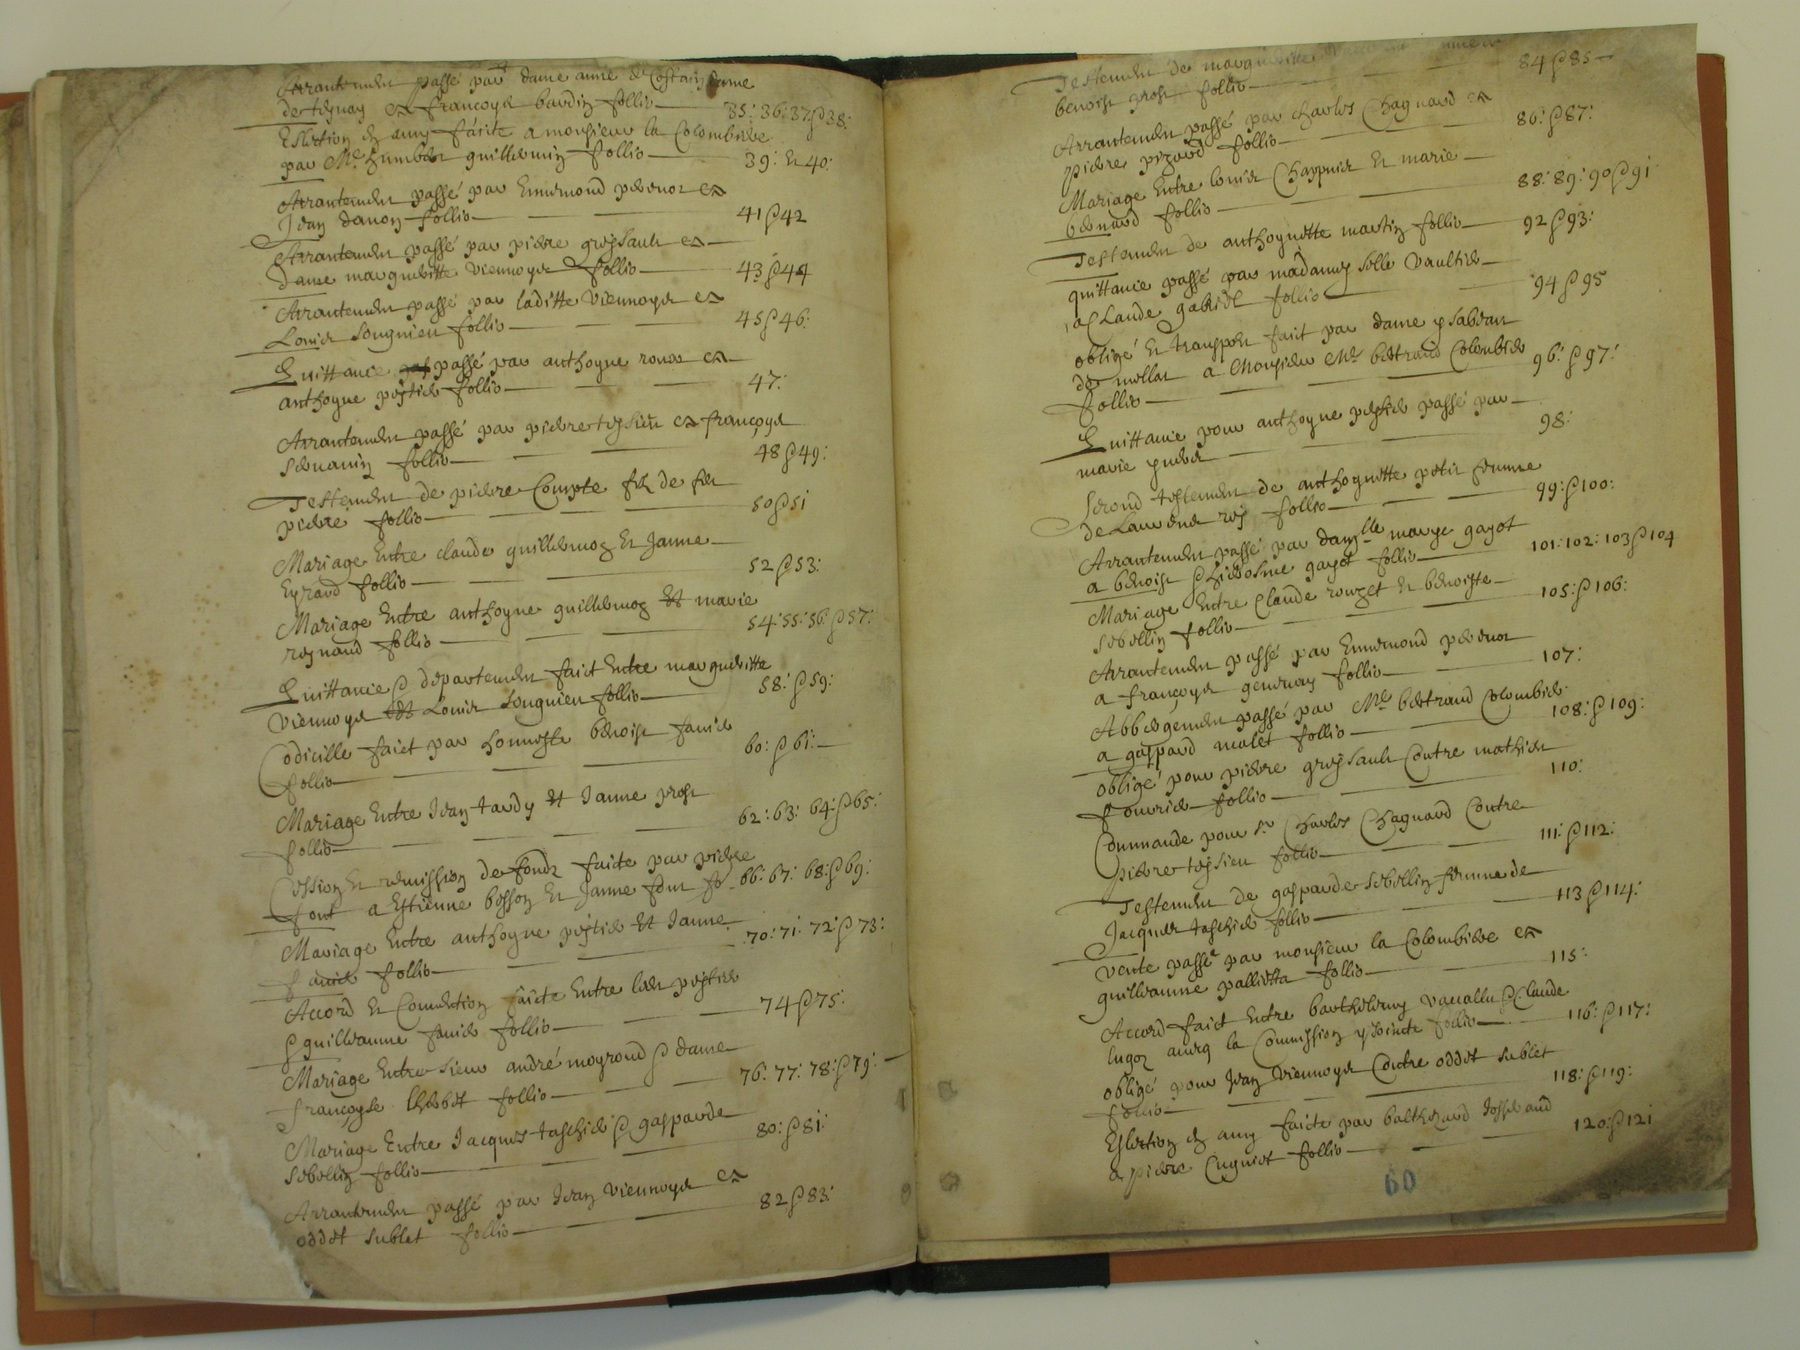 Arrantement passé par dame anne de Costaing dame
de tignay et francoyse bardin follio 35: 36: 37 & 38:
Eslection d amy faicte a monsieur la Colombiere
par Me humbert guilliermin follio 39: Et 40:
Arrantement passé par Ennemond pervnor et
Jean danon follio 41 & 42
Arrantement passé par pierre greysault et
dame margueritte viennoyse follio 43 & 44
Arrantement passé par laditte Viennoyse et
Louis Songnieu follio 45 & 46:
Quittance passé par anthoyne et
anthoyne follio 47:
Arrantement passé par pierre teysieu et francoyse
follio 48 & 49:
Testement de pierre Compte filz de feu
pierre follio 50 & 51
Mariage Entre claude guilliermoz Et Janne
Eyraud follio 52 & 53:
Mariage Entre anthoyne guilliermoz Et marie
reynaud follio 54: 55: 56: & 57:
Quittance & departement faict Entre margueritte
viennoyse Et Louis Songnieu follio 58: & 59:
Codicille faict par honneste benoist favier
follio 60: & 61:
Mariage Entre Jean tardy Et Janne prost
follio 62: 63: 64: & 65:
Cession Et remission de fondz faicte par pierre
font a Estienne besson Et Janne font fo 66: 67: 68: & 69:
Mariage Entre anthoyne Et Janne
favier follio 70: 71: 72: & 73:
Accord Et Convention faicte Entre
& guilliaume favier follio 74 & 75:
Mariage Entre sieur andré moyroud & dame
francoyse follio 76: 77: 78: & 79:
Mariage Entre Jacques taschier & gasparde
Sebellin follio 80: & 81:
Arrantement passé par Jean viennoys et
oddet sublet follio 82 & 83:
Testement de margueritte
benoist prost follio 84 & 85
Arrantement passé par charles Chagnard et
pierre follio 86: & 87:
Mariage Entre louis Chappuis Et marie
bernard follio 88: 89: 90 & 91
Testement de anthoynette martin follio 92 & 93:
quittance passé par madamoyselle vaultier
a Claude gabriel follio 94 & 95
obligé Et transport faict par dame ysabeau
de mollar a Monsieur Me bertrand Colombier
follio 96: & 97:
Quittance pour anthoyne passé par
marie 98:
Second testement de anthoynette petit femme
de Laurens rey follio 99: & 100:
Arrantement passé par damlle marye gayot
a benoist & hierosme gayot follio 101: 102: 103 & 104
Mariage Entre Claude rouget Et benoiste
Sebellin follio 105: & 106:
Arrantement passé par Ennemond pervnor
a francoyse follio 107:
Abbergement passé par Me bertrand Colombier
a gaspard malet follio 108: & 109:
obligé pour pierre greysault Contre mathieu
fourrier follio 110:
Commande pour sr Charles Chagnard Contre
pierre teysieu follio 111: & 112:
Testement de gasparde Sebellin femme de
Jacques taschier follio 113 & 114:
vente passé par monsieur la Colombiere et
guilliaume palliotta follio 115:
Accord faict Entre barthelemy & Claude
avecq la Commission follio 116: & 117:
obligé pour Jean Viennoys Contre oddet sublet
follio 118: & 119:
Eslection d amy faicte par balthezard Josserand
a pierre Cuguiet follio 120: & 121
60